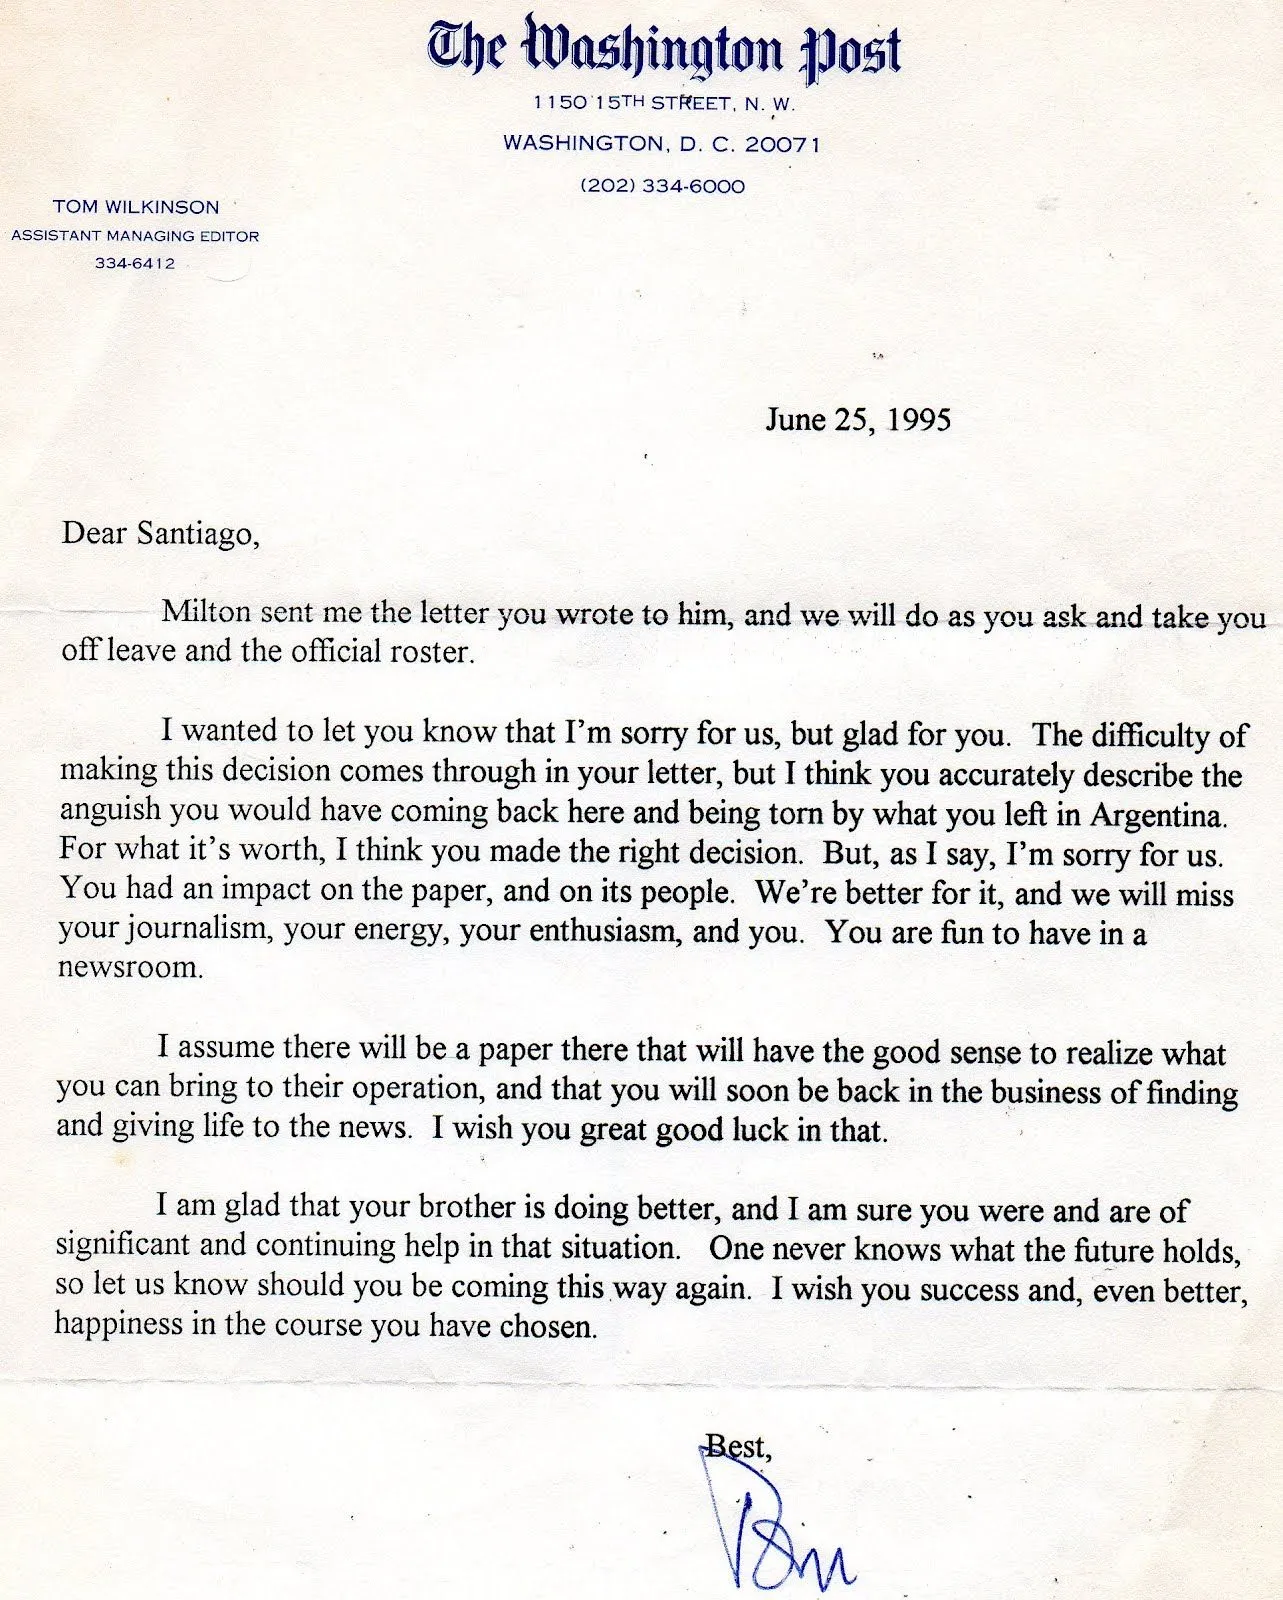 The Washington Post
1150 15TH STREET, N. W.
WASHINGTON, D. C. 20071
(202) 334-6000
TOM WILKINSON
ASSISTANT MANAGING EDITOR
334-6412
June 25, 1995
Dear Santiago,
Milton sent me the letter you wrote to him, and we will do as you ask and take you
off leave and the official roster.
I wanted to let you know that I'm sorry for us, but glad for you. The difficulty of
making this decision comes through in your letter, but I think you accurately describe the
anguish you would have coming back here and being torn by what you left in Argentina.
For what it's worth, I think you made the right decision. But, as I say, I'm sorry for us.
You had an impact on the paper, and on its people. We're better for it, and we will miss
your journalism, your energy, your enthusiasm, and you. You are fun to have in a
newsroom.
I assume there will be a paper there that will have the good sense to realize what
you can bring to their operation, and that you will soon be back in the business of finding
and giving life to the news. I wish you great good luck in that.
I am glad that your brother is doing better, and I am sure you were and are of
significant and continuing help in that situation. One never knows what the future holds,
so let us know should you be coming this way again. I wish you success and, even better,
happiness in the course you have chosen.
Best,